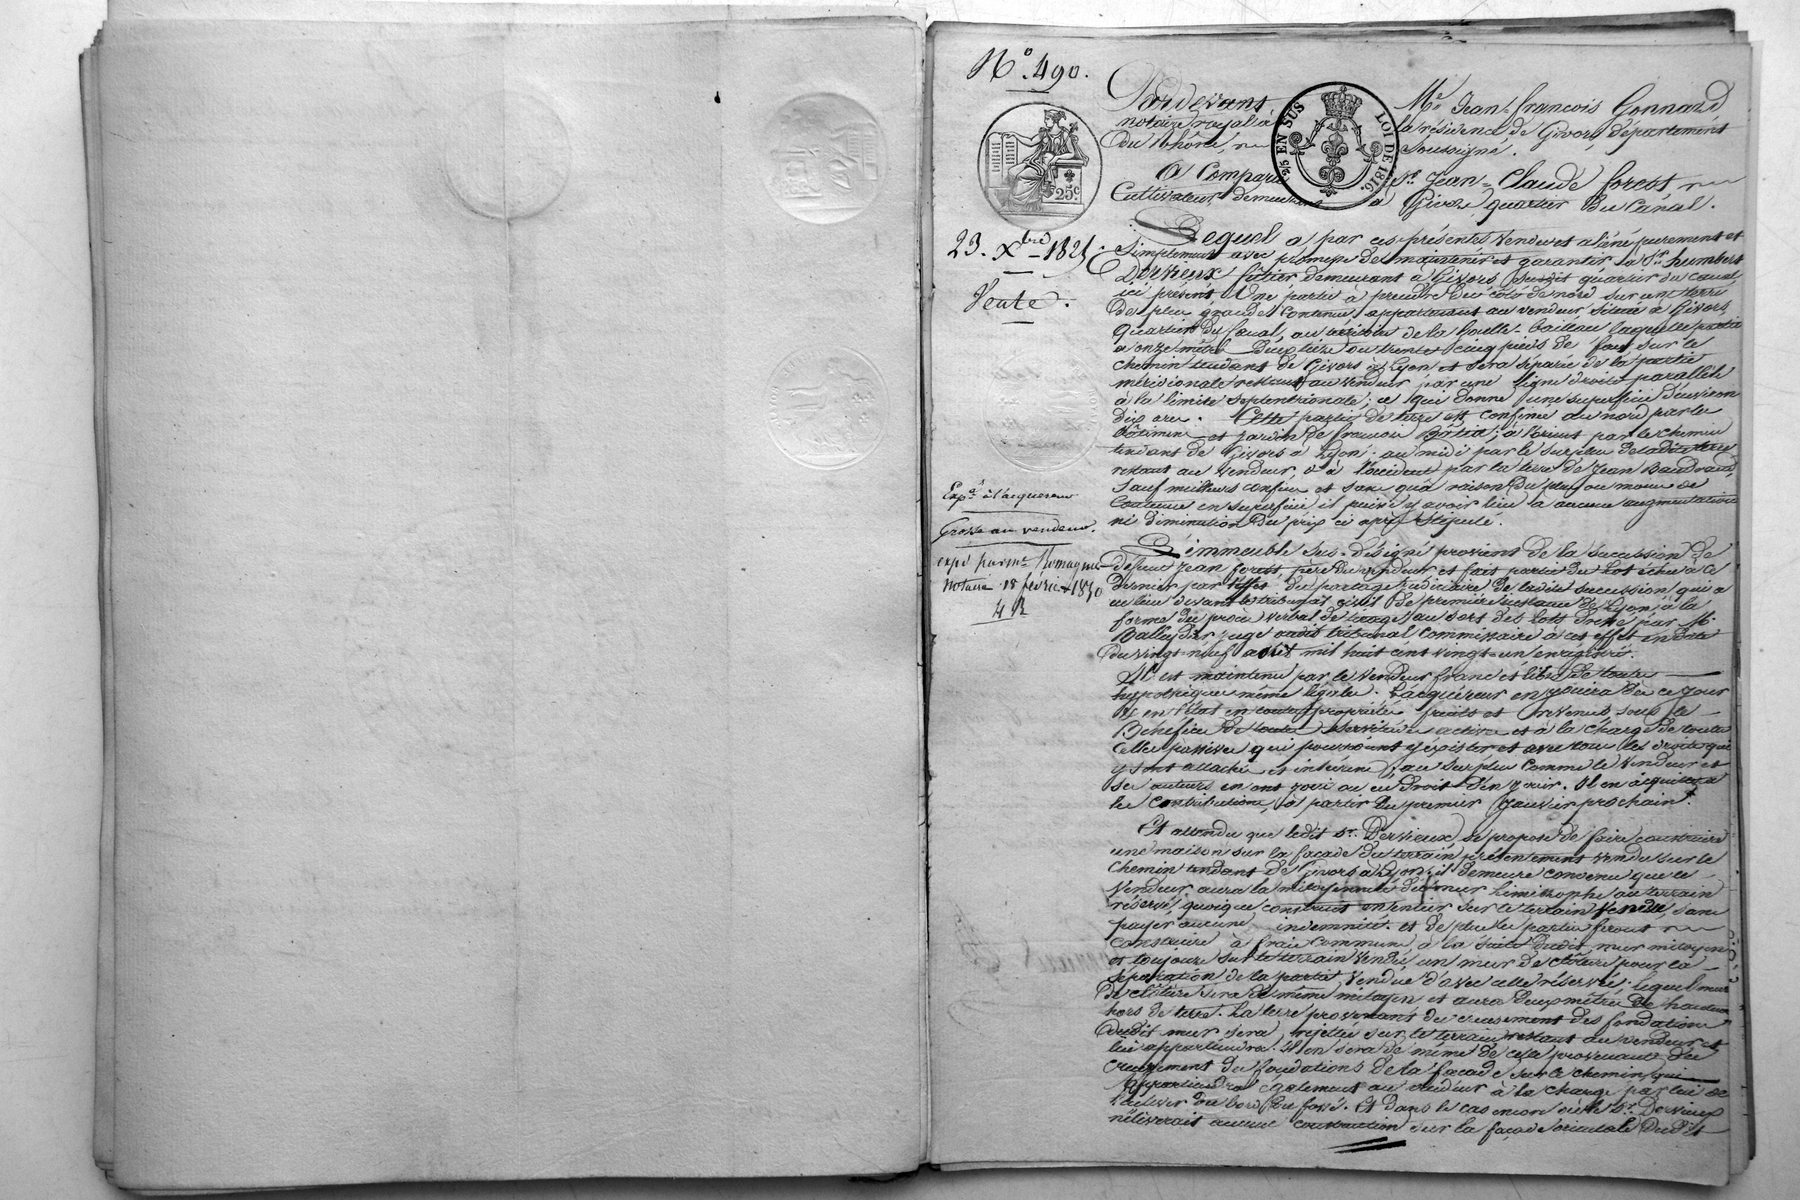 N° 490.
23. Xbre 1825
Vente.
Expon à l'acquereur
Grosse au vendeur.
expé par me Romagnie
Notaire 18 fevrier 1830
25c
EN SUS
LOI DE 1816.
Pardevant Me Jean-françois Gonnard
notaire royal à la résidence de Givors, département
du Rhône, soussigné.
A Comparu Sr Jean-Claude forest
Cultivateur demeurant à Givors quartier du Canal.
Lequel a par ces présentes vendu et aliéné purement et
simplement avec promesse de maintenir et garantir à Sr humbert
Dervieux demeurant à Givors susdit quartier du canal
ici présent, Une partie à prendre du côté de nord sur une terre
de plus grande contenue appartenant au vendeur, située à Givors
quartier du Canal, au territoire de la laquelle partie
a onze mètres ou trente cinq pieds de face sur le
chemin tendant de Givors à Lyon et sera séparée de la partie
méridionale restant au vendeur par une ligne droite parallèle
à la limite septentrionale; ce qui donne une superficie d'environ
dix ares. Cette partie de terre est confinée au nord par les
bâtimens et jardin de francois; à l'orient par le chemin
tendant de Givors à Lyon; au midi par le surplus de ladite terre
restant au vendeur, et à l'occident par la terre de Jean Baudrand,
sauf meilleurs confins et sans qu'à raison du plus ou moins de
contenue en superficie il puisse y avoir lieu à aucune augmentation
ni diminution du prix ci après stipulé.
L'immeuble sus-désigné provient de la succession de
défunt Jean forest, père du vendeur et fait partie du lot échu à ce
dernier par l'effet du partage judiciaire de ladite succession qui a
eu lieu devant le tribunal civil de première instance de Lyon, à la
forme du procès verbal de tirage au sort des lots dressé par Mr
juge audit tribunal commissaire à cet effet en date
du vingt-neuf août mil huit cent vingt-un enregistré.
Il est maintenu par le vendeur franc et libre de toutes
hypothèques même légales. L'acquéreur en jouira dès ce jour
en toute propriété fruits et revenus, sous le
Bénéfice de toutes servitudes actives et à la charge de toutes
celles passives qui pourroient y exister et avec tous les droits qui
y sont attachés et inhérens; au surplus comme le vendeur et
ses auteurs en ont joui ou eu droit d'en jouir. Il en acquittera
les contributions, à partir du premier janvier prochain.
Et attendu que ledit Sr. Dervieux se propose de faire construire
une maison sur la façade du terrain présentement vendu sur le
chemin tendant de Givors à Lyon, il demeure convenu que le
vendeur aura la mitoyenneté du mur limitrophe au terrain
réservé, quoique construit en entier sur le terrain vendu, sans
payer aucune indemnité. et de plus les parties feront
construire à frais communs, à la suite dudit mur mitoyen
et toujours sur le terrain vendu un mur de clôture pour la
séparation de la partie vendue d'avec celle réservée; lequel mur
de clôture sera de même mitoyen et aura deux mètres de hauteur
hors de terre. La terre provenant du creusement des fondations
dudit mur sera rejettée sur le terrain restant au vendeur et
lui appartiendra. Il en sera de même de celle provenant du
creusement des fondations de la façade sur le chemin, qui
appartiendra également au vendeur à la charge par lui de
l'enlever du bord du fossé. Et dans le cas encore où le Sr. Dervieux
n'éleverait aucune construction sur la façade orientale dudit